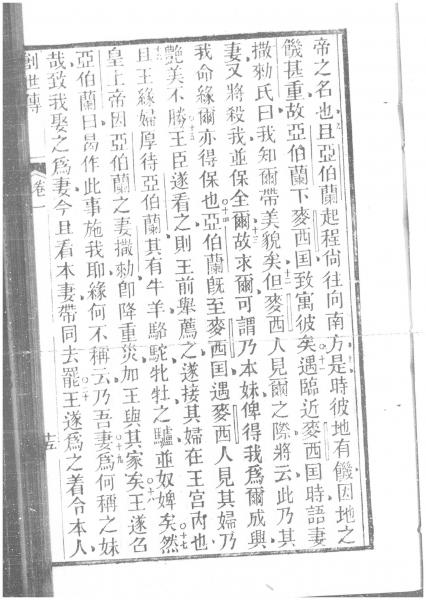 帝之名也且亞伯蘭起程尙往向南方是時彼地有饑因地之
饑甚重故亞伯蘭下麥西囯致寓彼矣遇臨近麥西囯時語妻
撒勑氏曰我知爾帶美貌矣但麥西人見爾之際將云此乃其
妻又將殺我並保全爾故求爾可謂乃本妹俾得我爲爾成興
我命緣爾亦得保也亞伯蘭旣至麥西囯遇麥西人見其婦乃
艷美不勝王臣遂看之則王前舉薦之遂接其婦在王宮內也
且王緣婦厚待亞伯蘭其有牛羊駱駝牝牡之驢並奴婢矣然
皇上帝因亞伯蘭之妻撒勑卽降重災加王與其家矣王遂召
亞伯蘭曰曷作此事施我耶緣何不稱云乃吾妻爲何稱之妹
哉致我娶之爲妻今且看本妻帶同去罷王遂爲之着令本人
創世傳 卷一